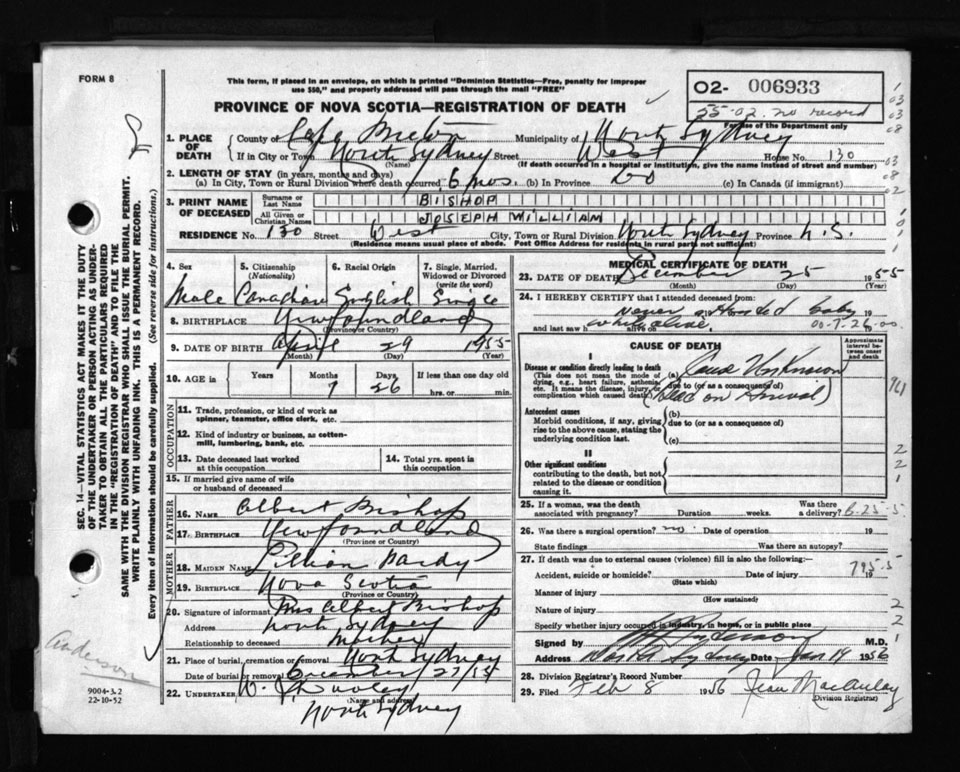 FORM 8
This form, if placed in an envelope, on which is printed "Dominion Statistics—Free, penalty for improper
use $50," and properly addressed will pass through the mail "FREE"
PROVINCE OF NOVA SCOTIA—REGISTRATION OF DEATH
02- 006933
55-02. no record
For use of the Department only
1. PLACE OF DEATH
County of Cape Breton Municipality of North Sydney
If in City or Town North Sydney Street West House No. 130
(Name) (If death occurred in a hospital or institution, give the name instead of street and number)
2. LENGTH OF STAY (in years, months and days)
(a) In City, Town or Rural Division where death occurred 6 mos. (b) In Province Do (c) In Canada (if immigrant)
3. PRINT NAME OF DECEASED
Surname or Last Name BISHOP
All Given or Christian Names JOSEPH WILLIAM
RESIDENCE No. 130 Street West City, Town or Rural Division North Sydney Province N.S.
(Residence means usual place of abode. Post Office Address for residents in rural parts not sufficient)
4. Sex 5. Citizenship (Nationality) 6. Racial Origin 7. Single, Married, Widowed or Divorced (write the word)
Male Canadian English Single
8. BIRTHPLACE Newfoundland
(Province or Country)
9. DATE OF BIRTH April 29 1955
(Month) (Day) (Year)
10. AGE in Years Months Days If less than one day old
7 26 hrs. or min.
OCCUPATION
11. Trade, profession, or kind of work as spinner, teamster, office clerk, etc.
12. Kind of industry or business, as cotton-mill, lumbering, bank, etc.
13. Date deceased last worked at this occupation
14. Total yrs. spent in this occupation
15. If married give name of wife or husband of deceased
FATHER
16. NAME Albert Bishop
17. BIRTHPLACE Newfoundland
(Province or Country)
MOTHER
18. MAIDEN NAME Lillian Hardy
19. BIRTHPLACE Nova Scotia
(Province or Country)
20. Signature of informant Mrs Albert Bishop
Address North Sydney
Relationship to deceased Mother
21. Place of burial, cremation or removal North Sydney
Date of burial or removal December 27/55
22. UNDERTAKER W. J. Dooley
(Name and address)
North Sydney
MEDICAL CERTIFICATE OF DEATH
23. DATE OF DEATH December 25 1955
(Month) (Day) (Year)
24. I HEREBY CERTIFY that I attended deceased from
Never baby
and last saw h alive on
while alive. 00-7-26-00
CAUSE OF DEATH
Approximate interval between onset and death
I
Disease or condition directly leading to death
(This does not mean the mode of dying, e.g., heart failure, asthenia, etc. It means the disease, injury, or complication which caused death)
(a) Cause Unknown
due to (or as a consequence of)
(Dead on Arrival)
Antecedent causes
Morbid conditions, if any, giving rise to the above cause, stating the underlying condition last.
(b)
due to (or as a consequence of)
(c)
II
Other significant conditions
contributing to the death, but not related to the disease or condition causing it.
25. If a woman, was the death associated with pregnancy? Duration weeks. Was there a delivery? 6-25-5
26. Was there a surgical operation? no Date of operation 19
State findings Was there an autopsy?
27. If death was due to external causes (violence) fill in also the following:
Accident, suicide or homicide? Date of injury 19
(State which)
795-5
Manner of injury
(How sustained)
Nature of injury
Specify whether injury occurred in industry, in home, or in public place
Signed by Anderson M.D.
Address North Sydney Date Jan 19 1956
28. Division Registrar's Record Number
29. Filed Feb 8 1956 Jean MacAulay
(Division Registrar)
SEC. 14—VITAL STATISTICS ACT MAKES IT THE DUTY
OF THE UNDERTAKER OR PERSON ACTING AS UNDER-
TAKER TO OBTAIN ALL THE PARTICULARS REQUIRED
IN THE "REGISTRATION OF DEATH" AND TO FILE THE
SAME WITH THE DIVISION REGISTRAR WHO SHALL ISSUE THE BURIAL PERMIT.
WRITE PLAINLY WITH UNFADING INK. THIS IS A PERMANENT RECORD.
Every item of information should be carefully supplied. (See reverse side for instructions.)
Anderson
9004-3.2
22-10-52
1
03
03
08
03
08
02
761
2
2
1
2
2
1